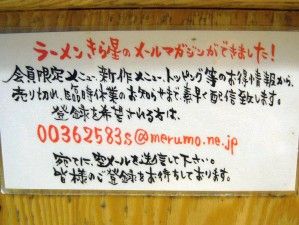 ラーメンきら星のメールマガジンができました!
会員限定メニュー、新作メニュー、トッピング等のお得情報から、
売り切れ、臨時休業のお知らせまで素早く配信致します。
登録を希望される方は、
00362583s@merumo.ne.jp
宛てに、空メールを送信して下さい。
皆様のご登録をお待ちしております。